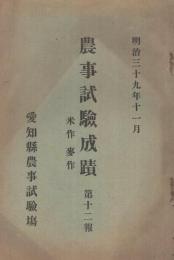 明治三十九年十一月
農事試驗成蹟 第十二報
米作 麥作
愛知縣農事試驗塲